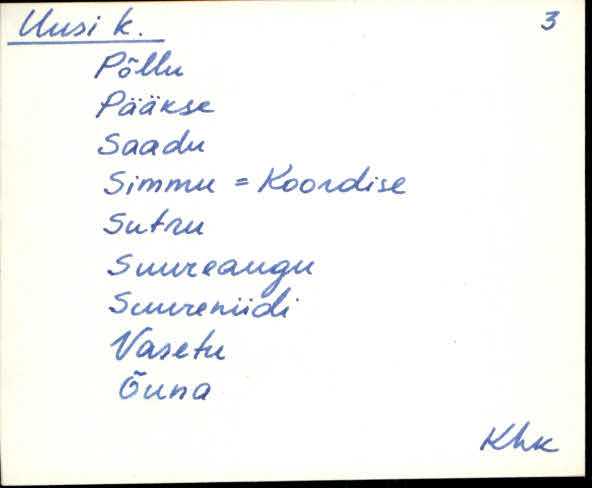 Uusi k. 3
Põllu
Pääkse
Saadu
Simmu = Koordise
Sutru
Suureaugu
Suureniidi
Vasetu
Õuna
Khk